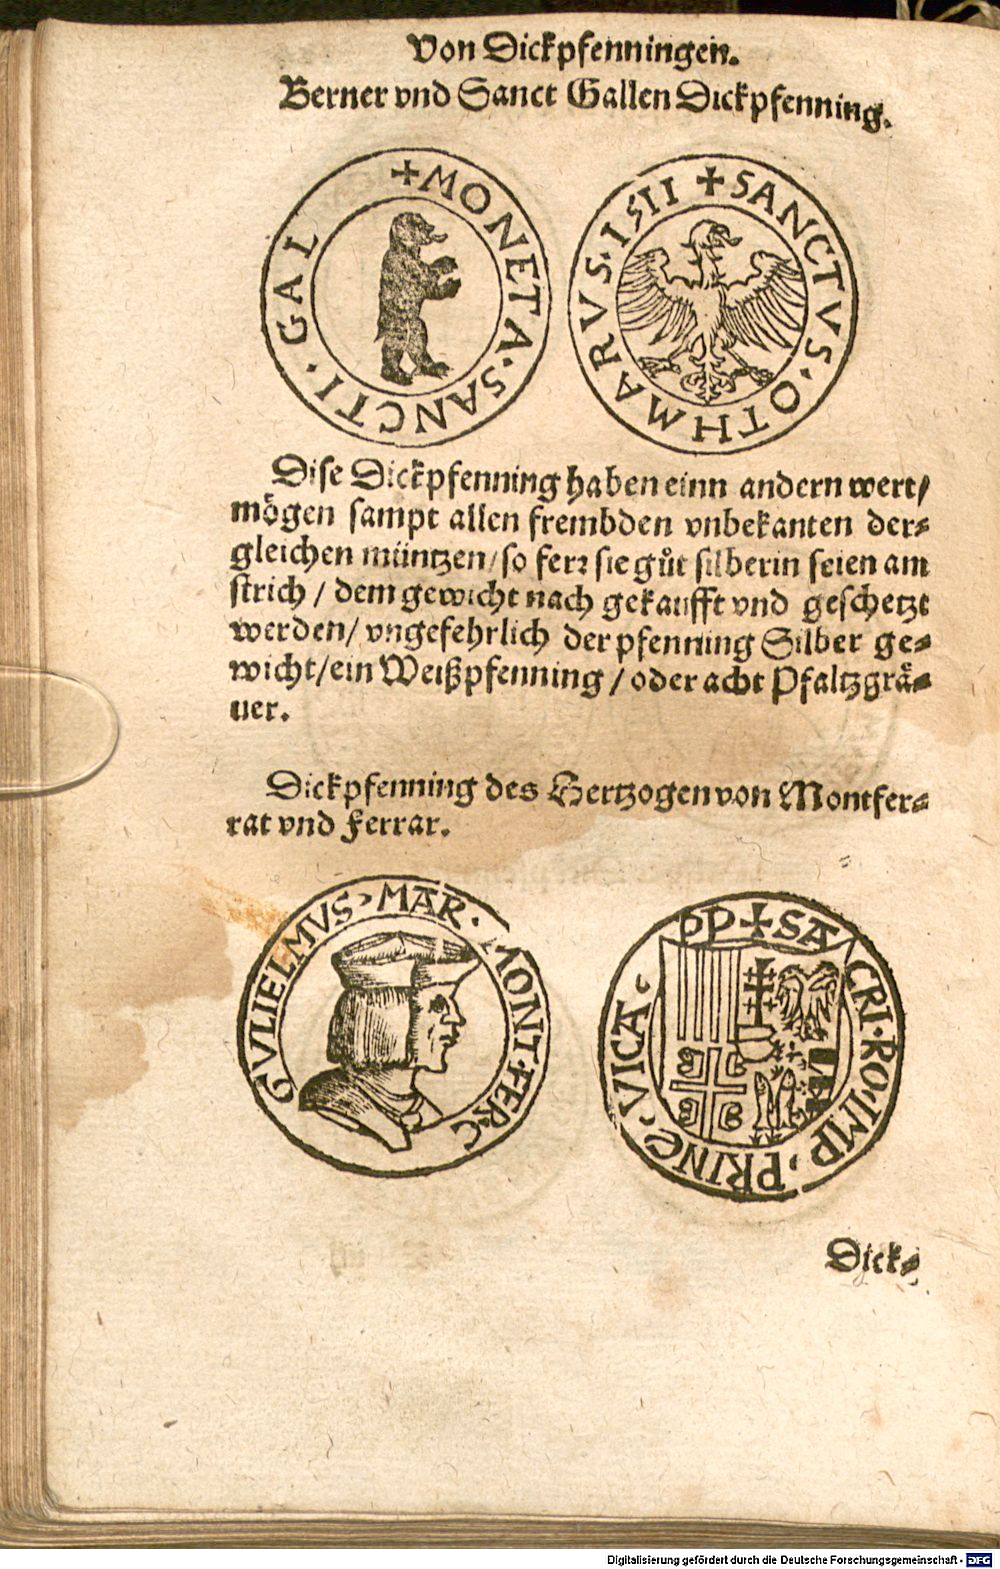 Von Dickpfenningen.
Berner vnd Sanct Gallen Dickpfenning.
✚MONETA·SANCTI·GAL
✚SANCTVS·OTHMARVS·ISII
Dise Dickpfenning haben einn andern wert/
mögen sampt allen frembden vnbekanten der⸗
gleichen müntzen/so ferꝛ sie gůt silberin seien am
strich / dem gewicht nach gekaufft vnd geschetzt
werden/ vngefehrlich der pfenning Silber ge⸗
wicht/ein Weißpfenning / oder acht Pfaltzgrä⸗
uer.
Dickpfenning des Hertzogen von Montfer⸗
rat vnd Ferrar.
GVLIELMVS·MAR·MONT·FER·C
PP✚SACRI·RO·IMP·PRINC·VICA·
Dick⸗
Digitalisierung gefördert durch die Deutsche Forschungsgemeinschaft - DFG